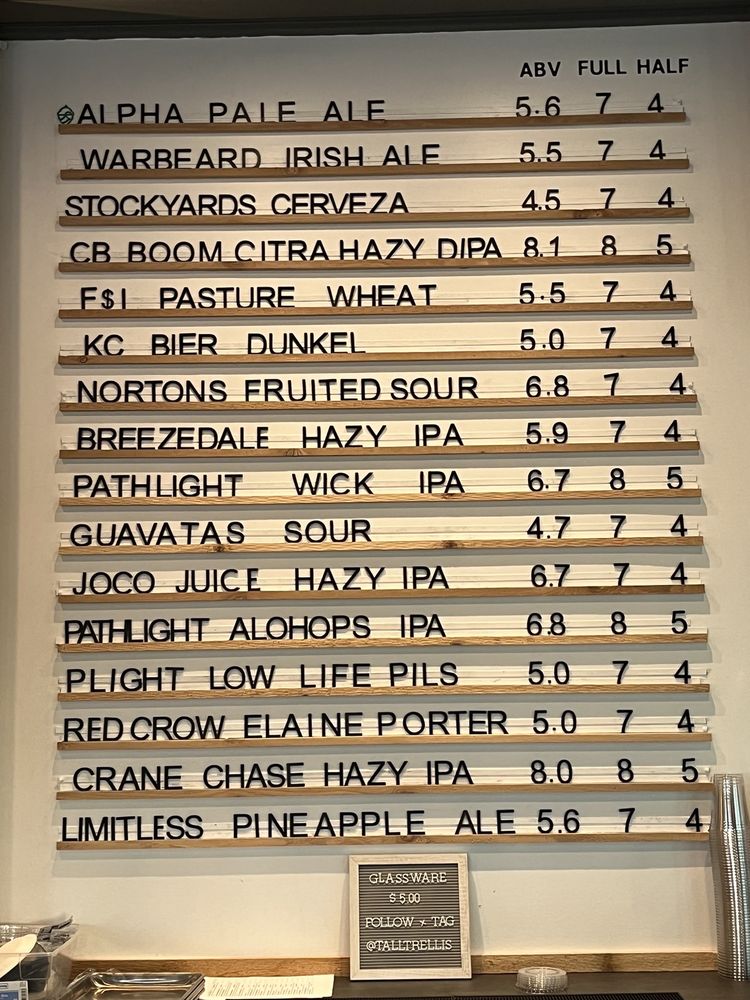 ABV FULL HALF
ALPHA PALE ALE 5.6 7 4
WARBEARD IRISH ALE 5.5 7 4
STOCKYARDS CERVEZA 4.5 7 4
CB BOOM CITRA HAZY DIPA 8.1 8 5
F$I PASTURE WHEAT 5.5 7 4
KC BIER DUNKEL 5.0 7 4
NORTONS FRUITED SOUR 6.8 7 4
BREEZEDALE HAZY IPA 5.9 7 4
PATHLIGHT WICK IPA 6.7 8 5
GUAVATAS SOUR 4.7 7 4
JOCO JUICE HAZY IPA 6.7 7 4
PATHLIGHT ALOHOPS IPA 6.8 8 5
PLIGHT LOW LIFE PILS 5.0 7 4
RED CROW ELAINE PORTER 5.0 7 4
CRANE CHASE HAZY IPA 8.0 8 5
LIMITLESS PINEAPPLE ALE 5.6 7 4
GLASSWARE
$ 5.00
FOLLOW + TAG
@TALLTRELLIS